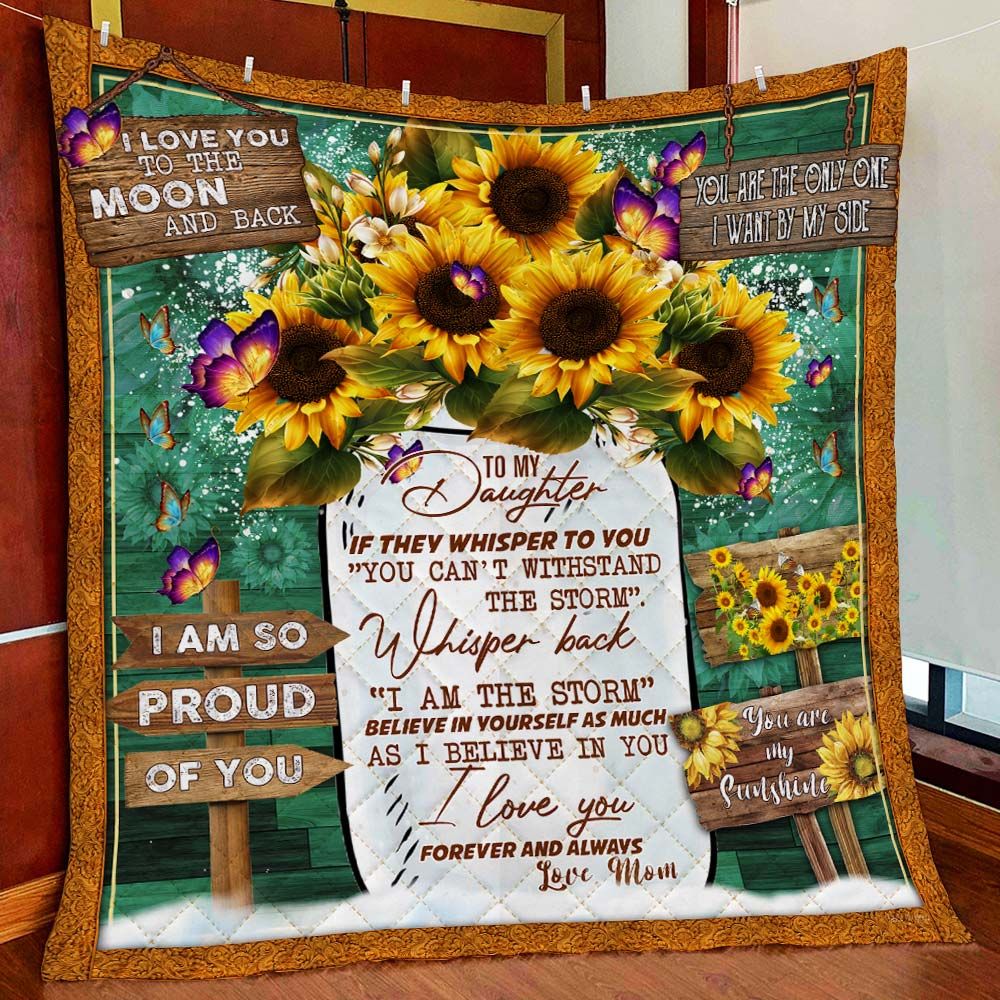 I LOVE YOU
TO THE
MOON
AND BACK
YOU ARE THE ONLY ONE
I WANT BY MY SIDE
TO MY
Daughter
IF THEY WHISPER TO YOU
"YOU CAN'T WITHSTAND
THE STORM".
Whisper back
"I AM THE STORM"
BELIEVE IN YOURSELF AS MUCH
AS I BELIEVE IN YOU
I love you
FOREVER AND ALWAYS
Love Mom
I AM SO
PROUD
OF YOU
You are
my
Sunshine